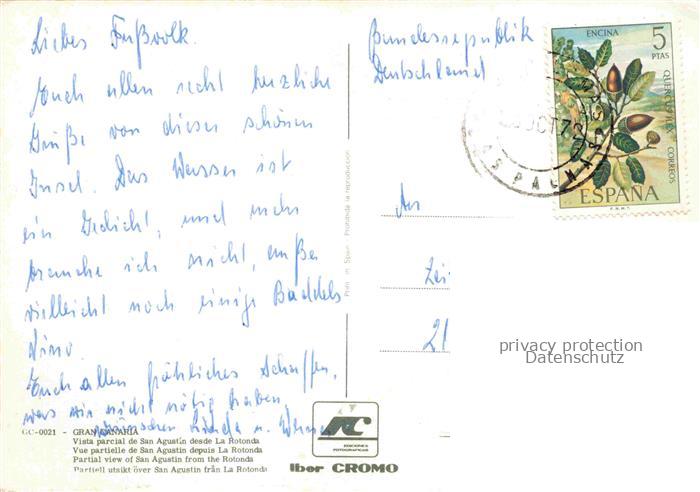 Liebes Fußvolk.
Euch allen recht herzliche
Grüße von dieser schönen
Insel. Das Wasser ist
ein Gedicht, und mehr
brauche ich nicht, außer
vielleicht noch einige Buddels
Vino.
Euch allen fröhliches Schaffen,
was wir nicht nötig haben,
wünschen Linda u.
GC-0021 - GRAN CANARIA
Vista parcial de San Agustín desde La Rotonda
Vue partielle de San Agustin depuis La Rotonda
Partial view of San Agustin from the Rotonda
Partiell utsikt över San Agustin från La Rotonda
Print in Spain Prohibida la reproducción
EDICIONES
FOTOGRAFICAS
Iber CROMO
Bundesrepublik
Deutschland
An
21
ENCINA
5
PTAS
QUERCUS ILEX
CORREOS
ESPAÑA
F.N.M.T.
OCT 72
LAS PALMAS
privacy protection
Datenschutz